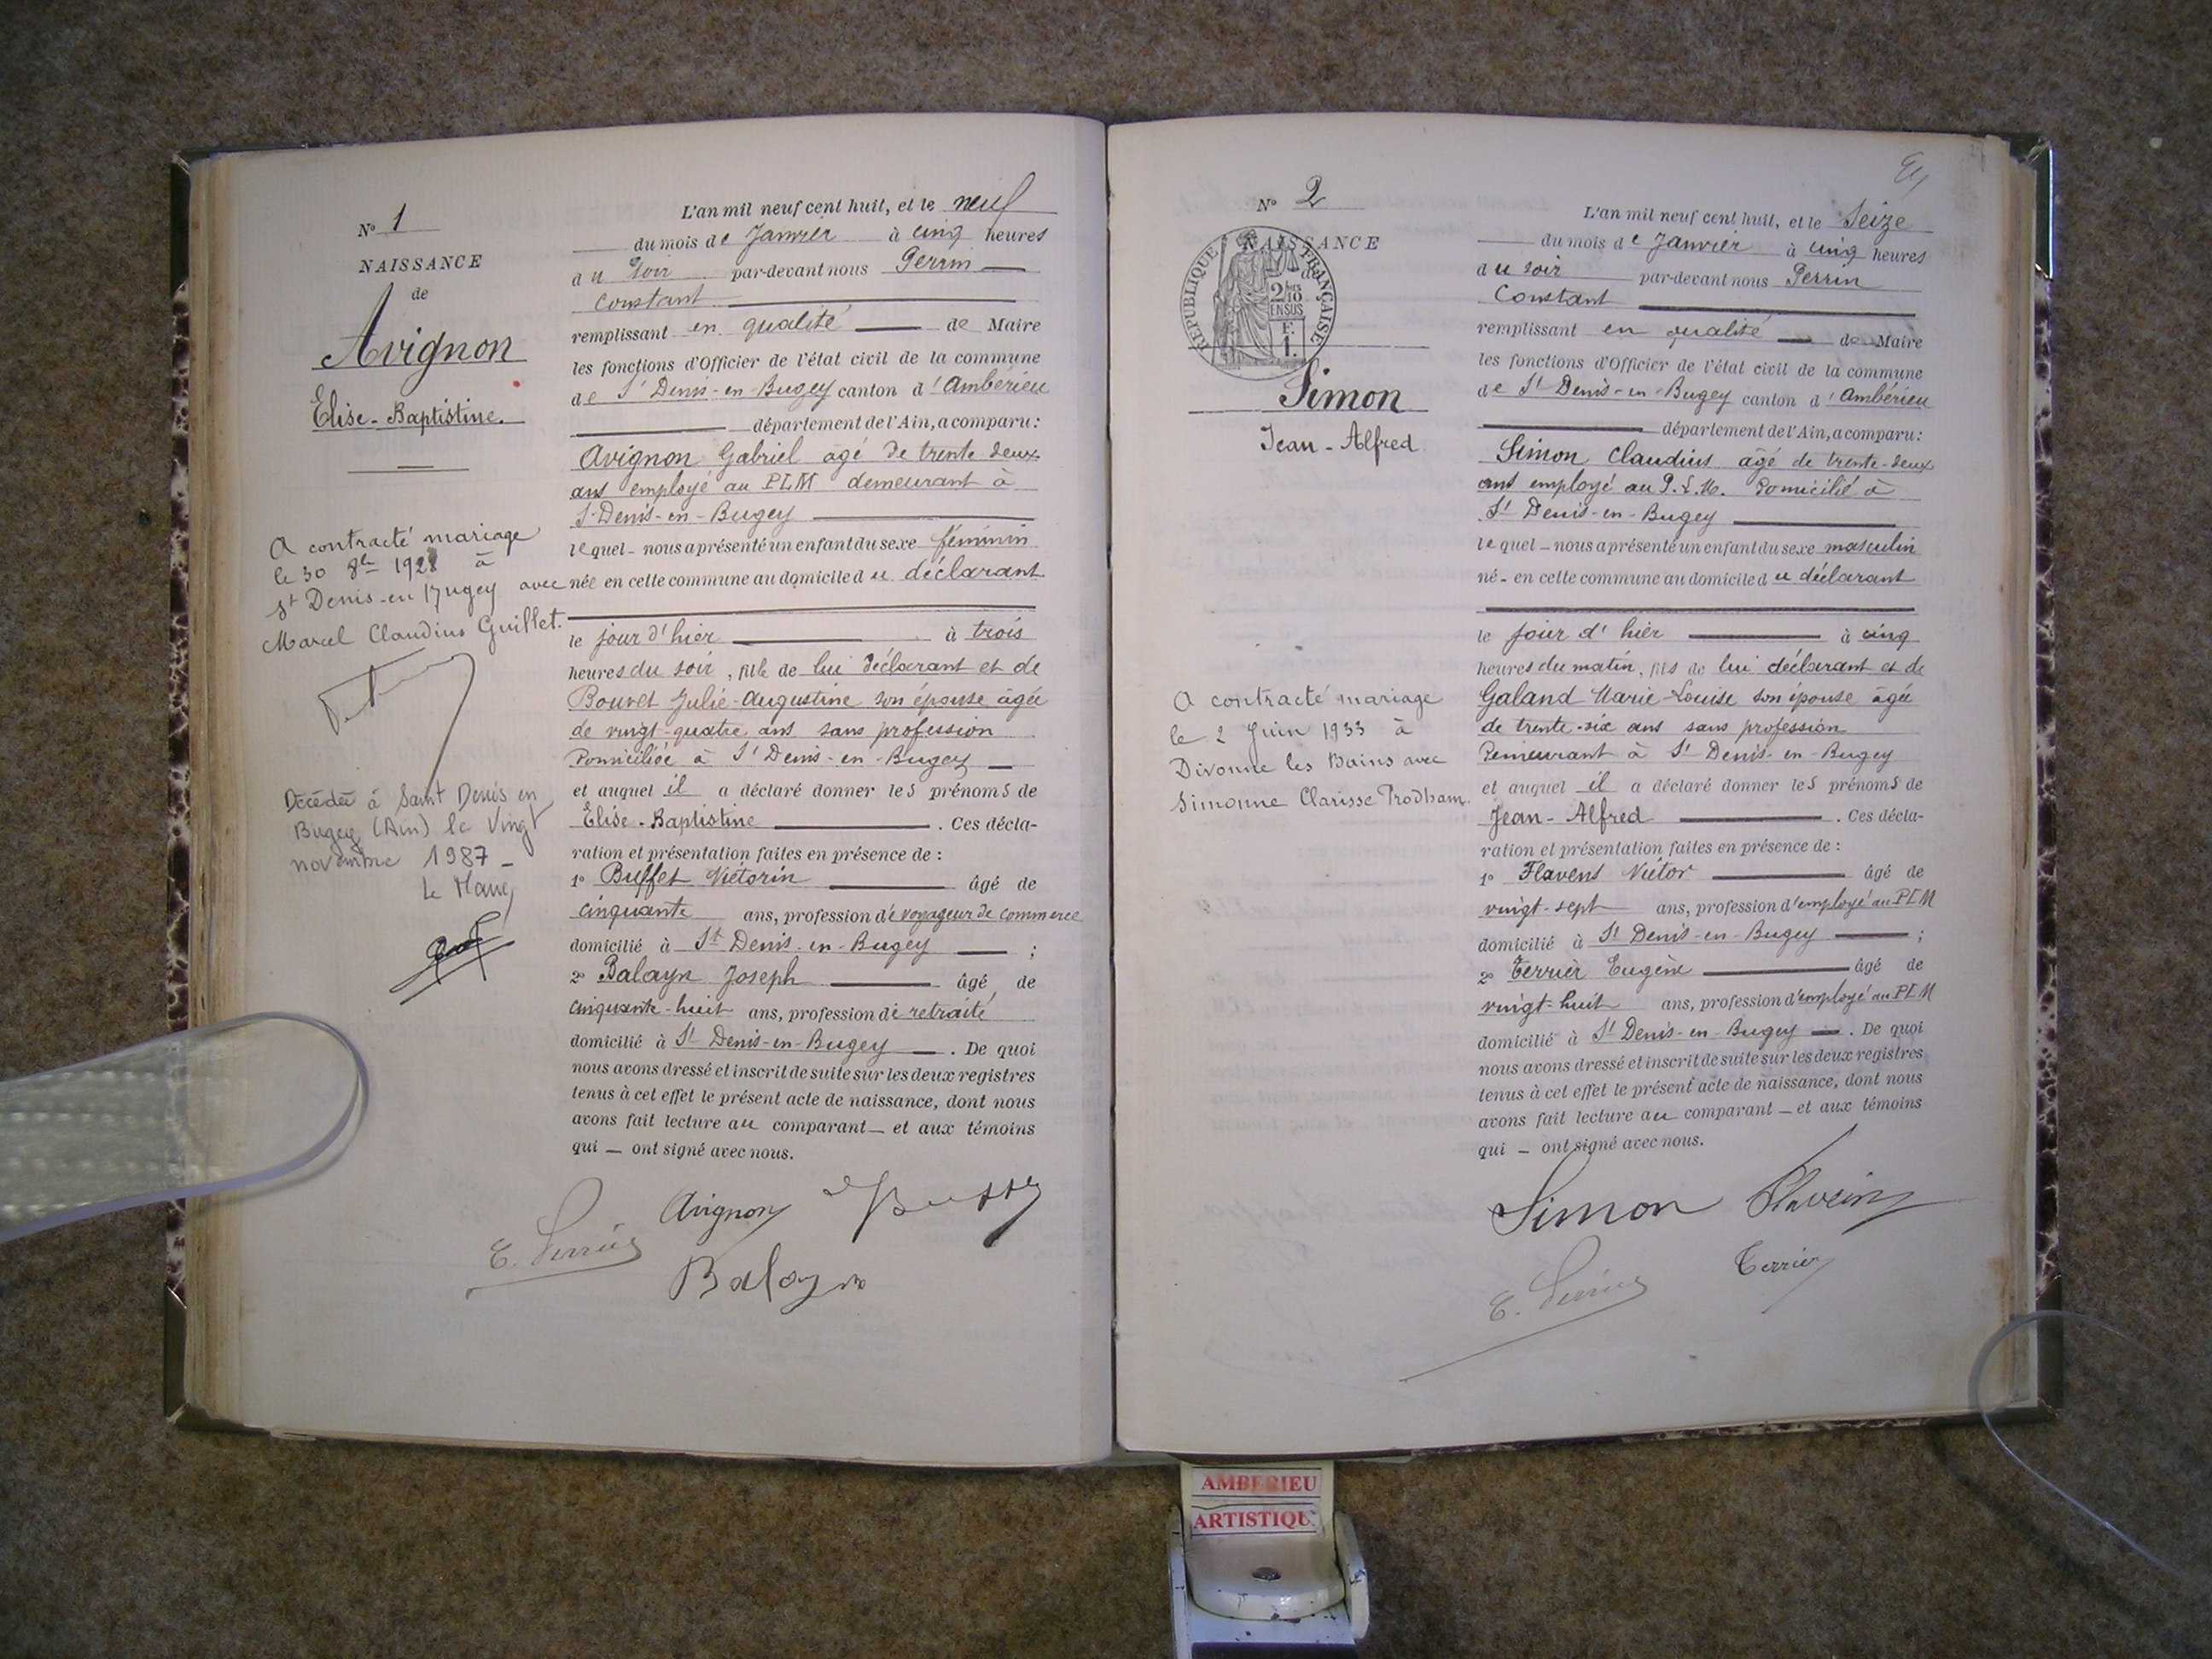 N° 1
NAISSANCE
de
Avignon
Elise-Baptistine.
A contracté mariage
le 30 8bre 1928 à
St Denis-en Bugey avec
Marcel Claudius Guillet.
Décédée à Saint Denis en
Bugey (Ain) le Vingt
novembre 1987 -
Le Maire
L'an mil neuf cent huit, et le neuf
du mois de Janvier à cinq heures
du soir par-devant nous Perrin
Constant
remplissant en qualité de Maire
les fonctions d'Officier de l'état civil de la commune
de St Denis-en-Bugey canton d'Ambérieu
département de l'Ain, a comparu :
Avignon Gabriel âgé de trente deux
ans employé au PLM demeurant à
St-Denis-en-Bugey
lequel nous a présenté un enfant du sexe féminin
née en cette commune au domicile du déclarant
le jour d'hier à trois
heures du soir, fille de lui déclarant et de
Bouvet Julie-Augustine son épouse âgée
de vingt-quatre ans sans profession
Domiciliée à St Denis-en-Bugey
et auquel il a déclaré donner les prénoms de
Elise-Baptistine . Ces décla-
ration et présentation faites en présence de :
1° Buffet Victorin âgé de
cinquante ans, profession de voyageur de commerce
domicilié à St Denis-en-Bugey ;
2° Balayn Joseph âgé de
cinquante-huit ans, profession de retraité
domicilié à St Denis-en-Bugey . De quoi
nous avons dressé et inscrit de suite sur les deux registres
tenus à cet effet le présent acte de naissance, dont nous
avons fait lecture au comparant et aux témoins
qui ont signé avec nous.
Avignon
Balayn
N° 2
NAISSANCE
de
RÉPUBLIQUE FRANÇAISE
2/10
EN SUS
F.
1.
Simon
Jean-Alfred
A contracté mariage
le 2 Juin 1933 à
Divonne les Bains avec
Simonne Clarisse Prodham.
L'an mil neuf cent huit, et le Seize
du mois de Janvier à cinq heures
du soir par-devant nous Perrin
Constant
remplissant en qualité de Maire
les fonctions d'Officier de l'état civil de la commune
de St Denis-en-Bugey canton d'Ambérieu
département de l'Ain, a comparu :
Simon Claudius âgé de trente-deux
ans employé au P.L.M. domicilié à
St Denis-en-Bugey
lequel nous a présenté un enfant du sexe masculin
né en cette commune au domicile du déclarant
le jour d'hier à cinq
heures du matin, fils de lui déclarant et de
Galand Marie-Louise son épouse âgée
de trente-six ans sans profession
Demeurant à St Denis-en-Bugey
et auquel il a déclaré donner les prénoms de
Jean-Alfred . Ces décla-
ration et présentation faites en présence de :
1° Flavens Victor âgé de
vingt-sept ans, profession d'employé au PLM
domicilié à St Denis-en-Bugey ;
2° Terrier Eugène âgé de
vingt-huit ans, profession d'employé au PLM
domicilié à St Denis-en-Bugey . De quoi
nous avons dressé et inscrit de suite sur les deux registres
tenus à cet effet le présent acte de naissance, dont nous
avons fait lecture au comparant et aux témoins
qui ont signé avec nous.
Simon
Terrier
AMBERIEU
ARTISTIQU